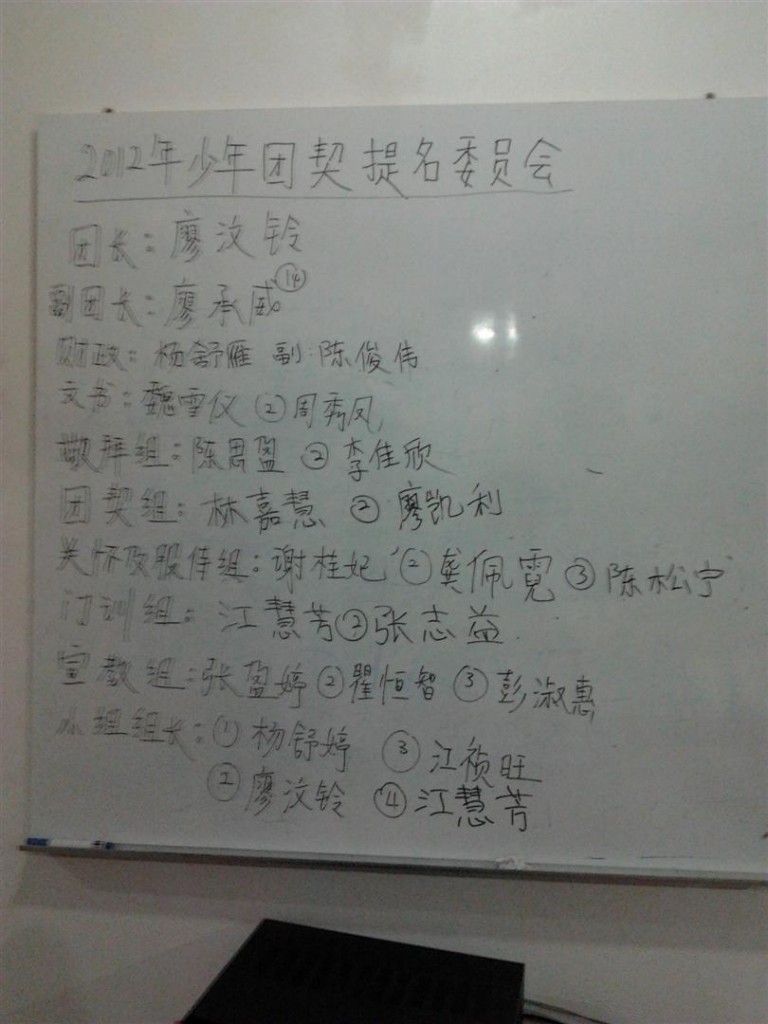 2012年少年团契提名委员会
团长：廖汶铃
副团长：廖承威 ⑭
财政：杨舒雁 副：陈俊伟
文书：魏雪仪 ②周秀凤
敬拜组：陈思盈 ② 李佳欣
团契组：林嘉慧 ② 廖凯利
关怀及服侍组：谢桂妃 ②龚佩霓 ③陈松宁
门训组：江慧芳②张志益
宣教组：张盈婷②瞿恒智 ③彭淑惠
小组组长：①杨舒婷 ③江祯旺
②廖汶铃 ④江慧芳